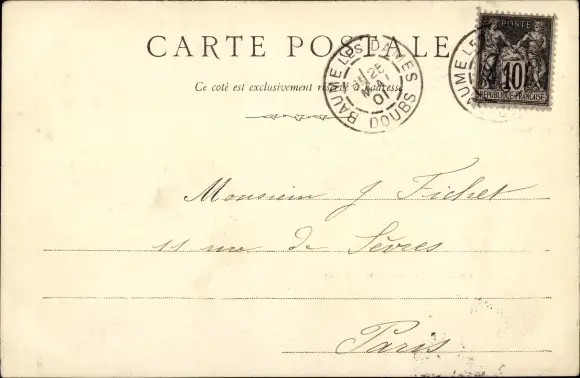 CARTE POSTALE
Ce coté est exclusivement réservé à l'adresse
BAUME LES DAMES
DOUBS
MAI
01
POSTE
10
REPUBLIQUE FRANÇAISE
BAUME LE
Monsieur J Fichet
11 rue de Sèvres
Paris